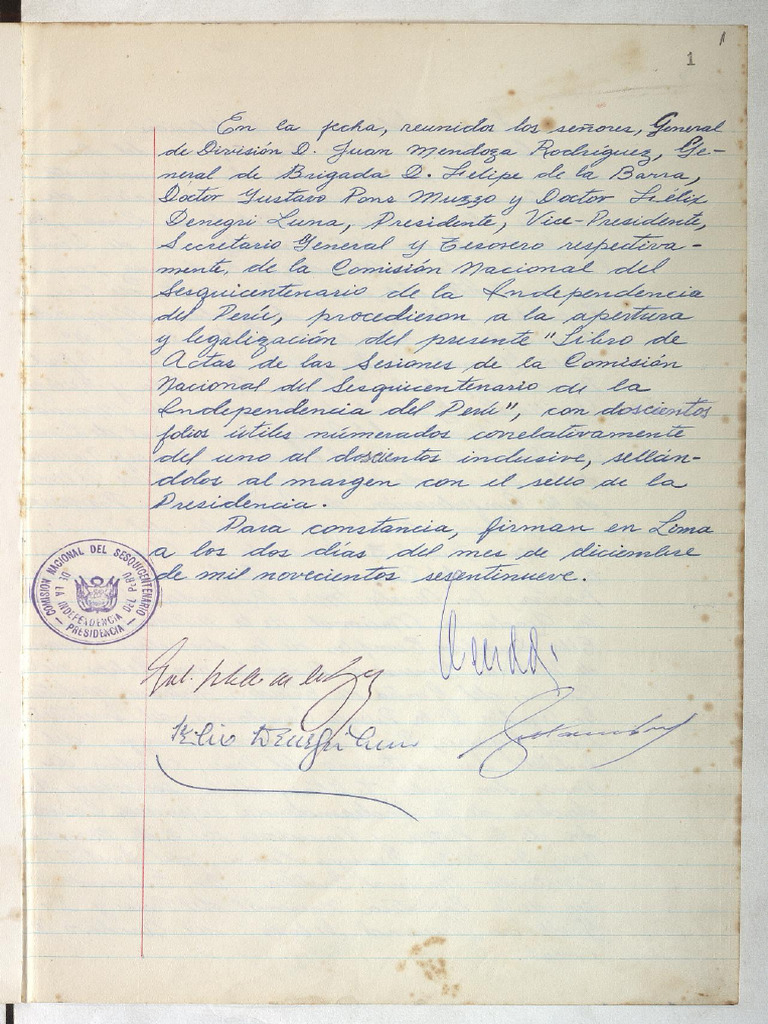 1
En la fecha, reunidos los señores, General
de División D. Juan Mendoza Rodríguez, Ge-
neral de Brigada D. Felipe de la Barra,
Doctor Gustavo Pons Muzzo y Doctor Félix
Denegri Luna, Presidente, Vice-Presidente,
Secretario General y Tesorero respectiva-
mente, de la Comisión Nacional del
Sesquicentenario de la Independencia
del Perú, procedieron a la apertura
y legalización del presente "Libro de
Actas de las Sesiones de la Comisión
Nacional del Sesquicentenario de la
Independencia del Perú", con doscientos
folios útiles númerados correlativamente
del uno al doscientos inclusive, sellán-
dolos al margen con el sello de la
Presidencia.
Para constancia, firman en Lima
a los dos días del mes de diciembre
de mil novecientos sesentinueve.
COMISION NACIONAL DEL SESQUICENTENARIO
DE LA INDEPENDENCIA DEL PERU
— PRESIDENCIA —
Denegri Luna